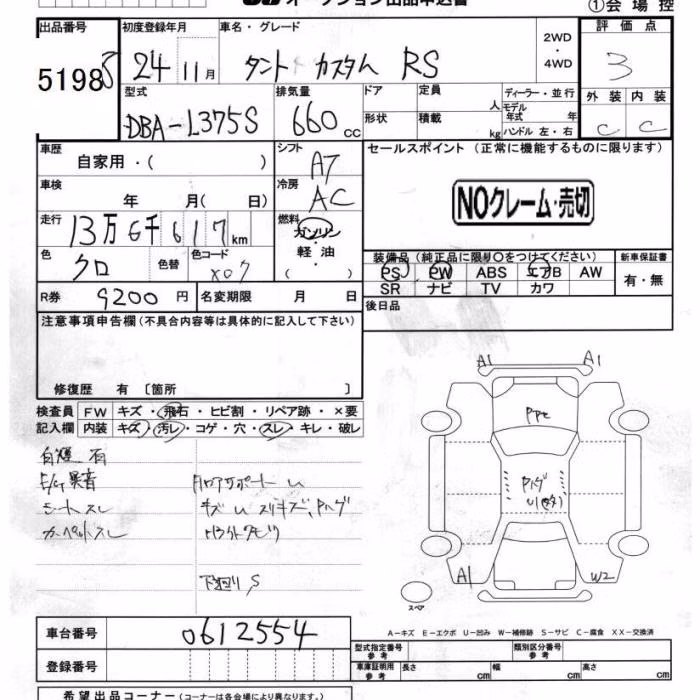 オークション出品申込書
①会場控
出品番号
5198
初度登録年月
24 11月
車名・グレード
タント カスタム RS
2WD
・
4WD
評価点
3
外装 内装
C C
型式
DBA-L375S
排気量
660 cc
ドア
形状
定員
人
積載
kg
ディーラー・並行
モデル
年式 年
ハンドル 左・右
車歴
自家用・( )
シフト
AT
セールスポイント (正常に機能するものに限ります)
NOクレーム・売切
車検
年 月( 日)
冷房
AC
走行
13万6千617km
燃料
ガソリン
・
軽油
・
( )
色
クロ
色替
色コード
X07
装備品 (純正品に限り〇をつけてください)
PS PW ABS エアB AW
SR ナビ TV カワ
新車保証書
有・無
R券
9200円
名変期限 月 日
後日品
注意事項申告欄 (不具合内容等は具体的に記入して下さい)
修復歴 有 〔箇所 〕
検査員
記入欄
FW キズ・飛石・ヒビ割・リペア跡・×要
内装 キズ・汚レ・コゲ・穴・スレ・キレ・破レ
有
E/G異音
シートスレ
カーペットスレ
下廻りS
A1 A1
A1 W2
スペア
A−キズ E−エクボ U−凹み W−補修跡 S−サビ C−腐食 XX−交換済
車台番号
0612554
登録番号
型式指定番号
参考
類別区分番号
参考
車庫証明用
参考
長さ cm 幅 cm 高さ cm
希望出品コーナー (コーナーは各会場により異なります。)